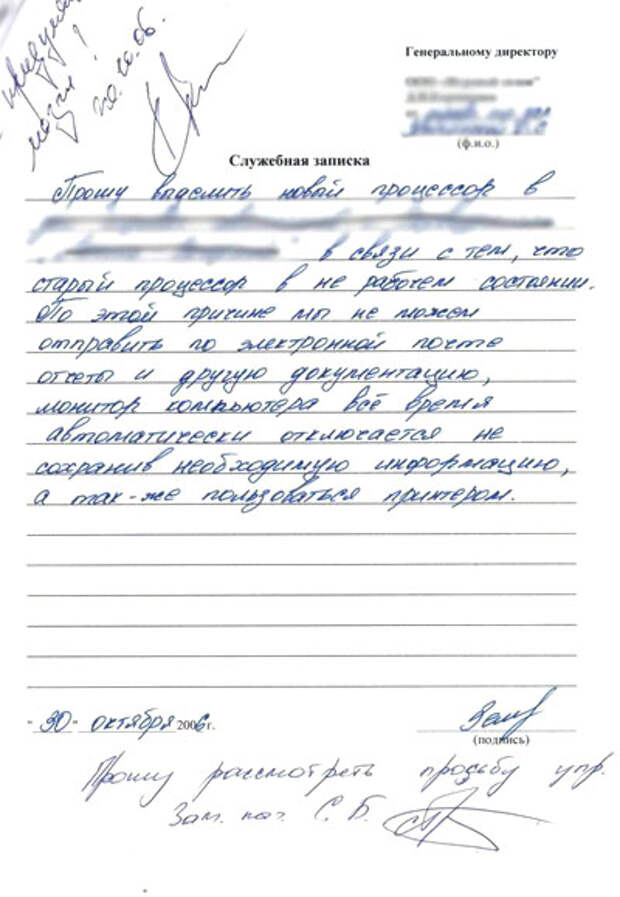 Генеральному директору
(ф.и.о.)
Служебная записка
Прошу выделить новый процессор в
в связи с тем, что
старый процессор в не рабочем состоянии.
По этой причине мы не можем
отправить по электронной почте
отчеты и другую документацию,
монитор компьютера всё время
автоматически отключается не
сохранив необходимую информацию,
а так-же пользоваться принтером.
"30" октября 2006 г.
(подпись)
Прошу рассмотреть просьбу упр.
Зам. нач. С.Б.